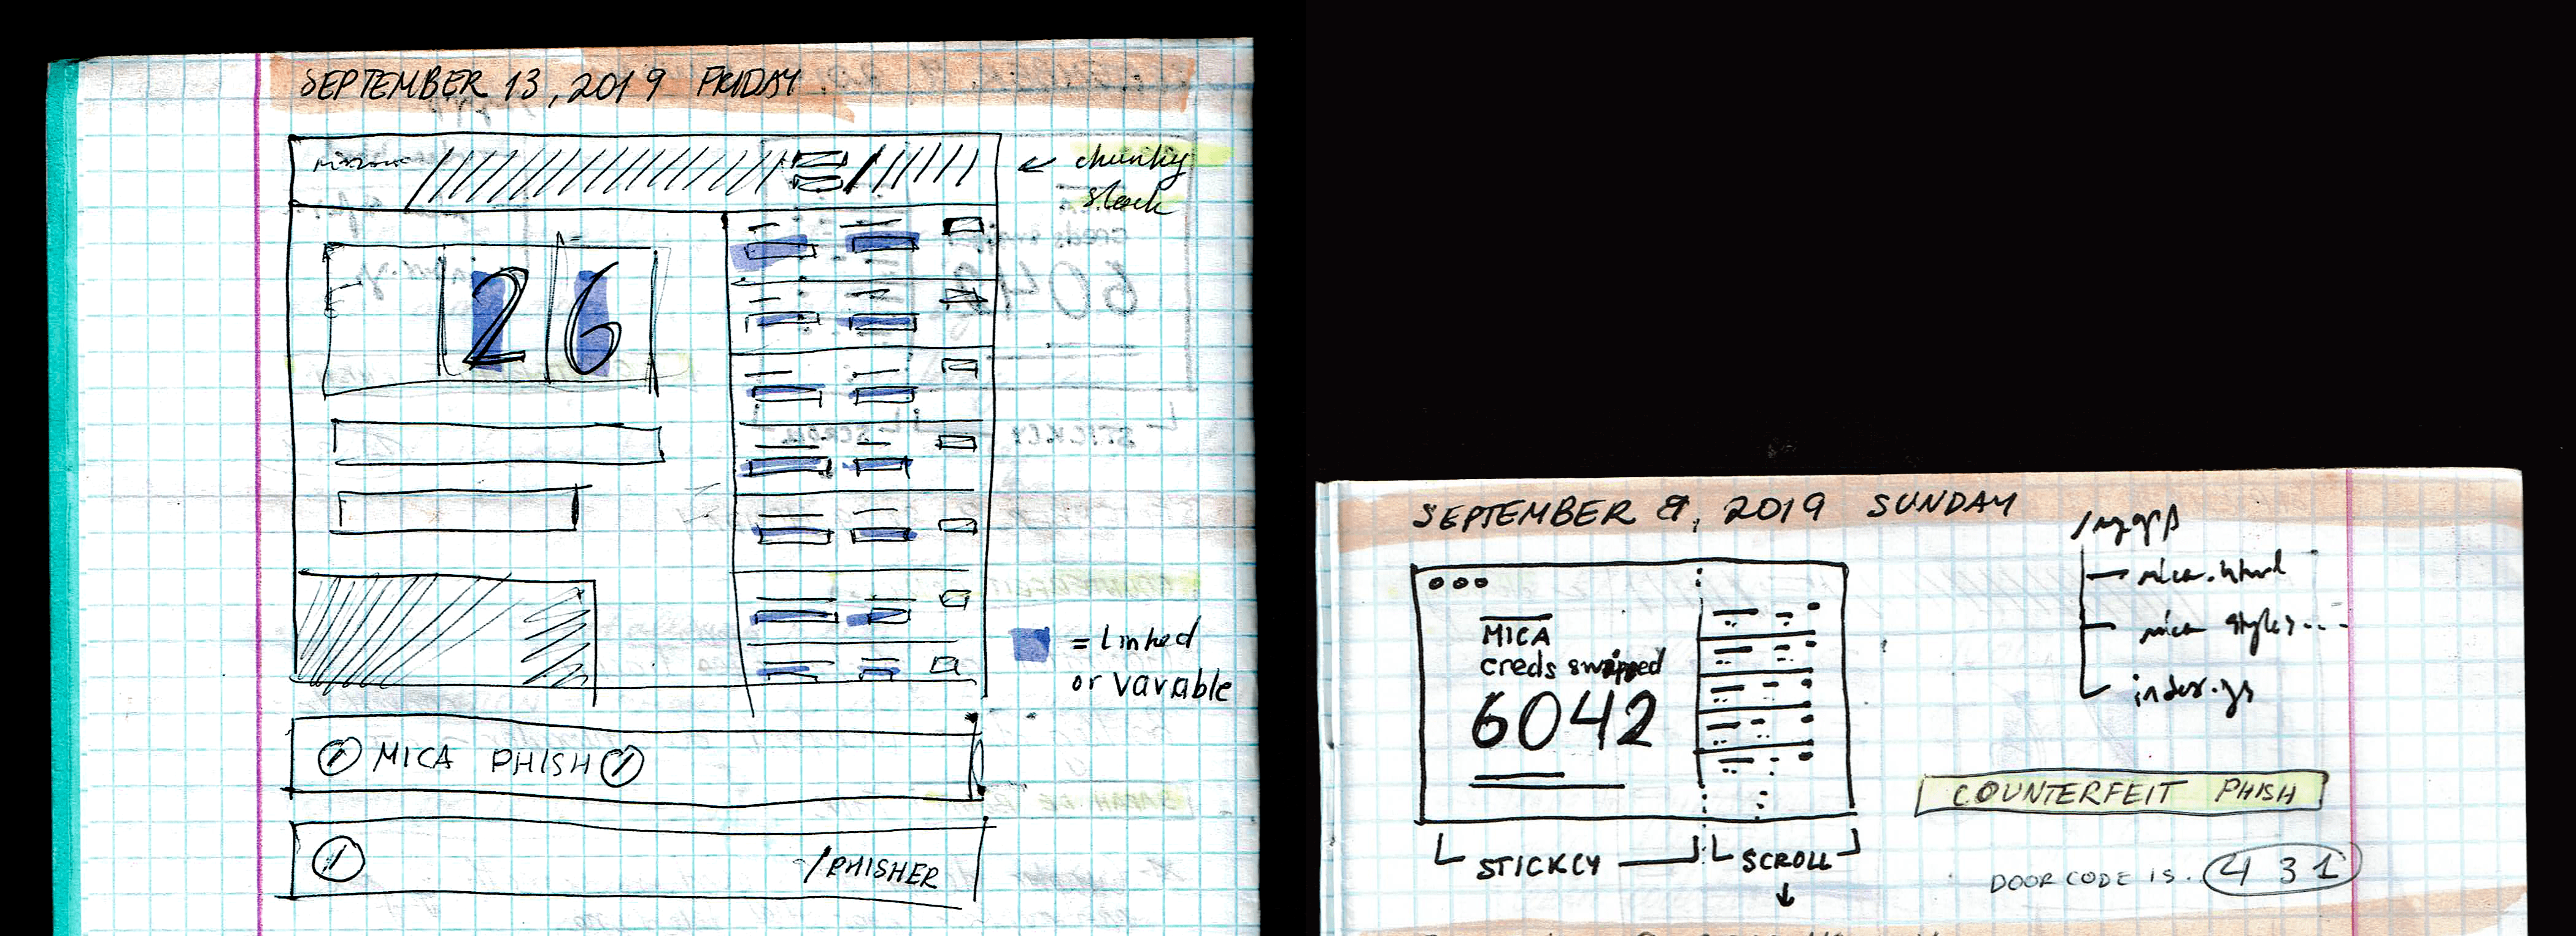 SEPTEMBER 13, 2019 FRIDAY
← chunky
26
= Linked
or varable
MICA PHISH
/PHISHER
SEPTEMBER 8, 2019 SUNDAY
MICA
creds swapped
6042
STICKCY
SCROLL
↓
/myapp
mica.html
mica styles...
index.js
COUNTERFEIT PHISH
DOOR CODE IS. 431